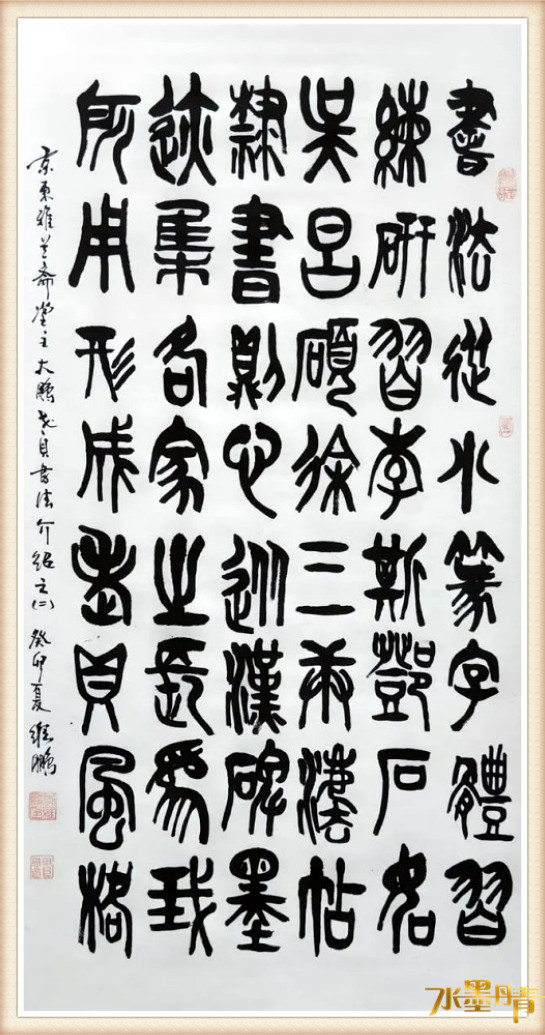 書法從小篆字體習
練研習李斯鄧石如
吳昌碩徐三庚法帖
隸書則心巡漢碑墨
迹集各家之長為我
所用形成老貝風格
京東雅兰齋堂主大鵬老貝書法介紹之(二) 癸卯夏 維鵬
水墨丹青